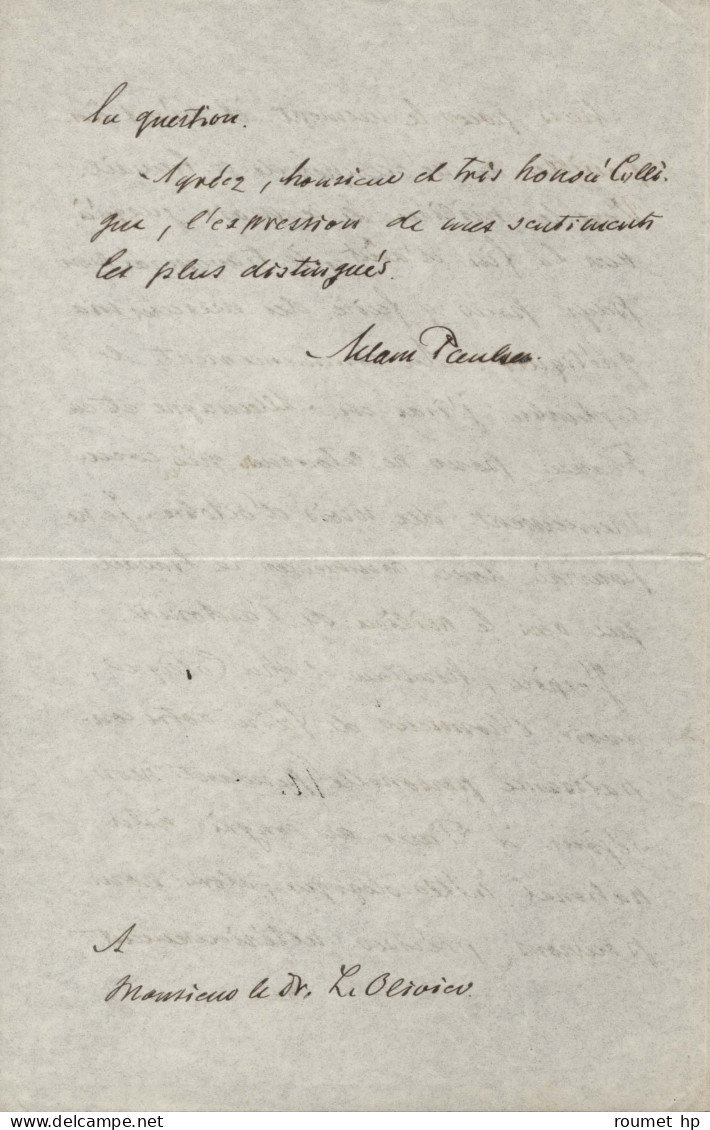 la question.
Agréez, Monsieur et très honoré Collè-
gue, l'expression de mes sentiments
les plus distingués.
Adam Paulsen.
A
Monsieur le Dr. L. Olivier.
roumet hp